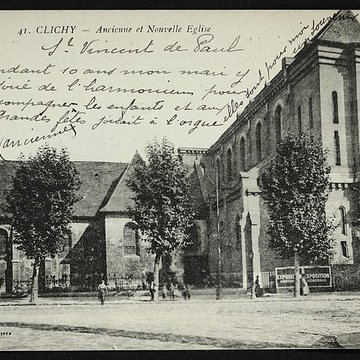 41. CLICHY — Ancienne et Nouvelle Eglise
St Vincent de Paul
endant 10 ans mon mari y
oué de l'harmonium pour
ccompagner les enfants et au
grandes fêtes jouait à l'orgue
(ancienne)
elles dont joués mon
EXPOSITION